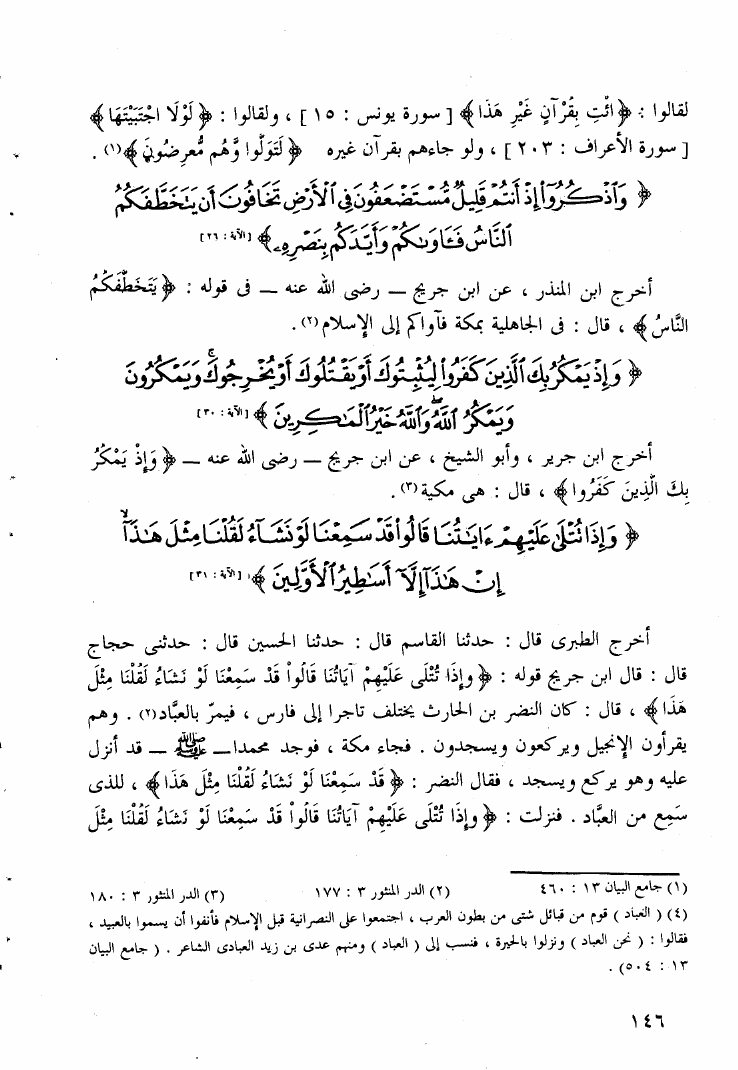 لقالوا : ﴿ ائْتِ بِقُرْآنٍ غَيْرِ هَذَا ﴾ [ سورة يونس : ١٥ ] ، ولقالوا : ﴿ لَوْلَا اجْتَبَيْتَهَا ﴾
[ سورة الأعراف : ٢٠٣ ] ، ولو جاءهم بقرآن غيره ﴿ لَتَوَلَّوا وَّهُم مُّعرِضُونَ ﴾(١) .
﴿ وَٱذْكُرُوٓا۟ إِذْ أَنتُمْ قَلِيلٌ مُّسْتَضْعَفُونَ فِى ٱلْأَرْضِ تَخَافُونَ أَن يَتَخَطَّفَكُمُ
ٱلنَّاسُ فَـَٔاوَىٰكُمْ وَأَيَّدَكُم بِنَصْرِهِۦ ﴾ [الآية : ٢٦]
أخرج ابن المنذر ، عن ابن جريج ــ رضى الله عنه ــ فى قوله : ﴿ يَتَخَطَّفَكُمُ
النَّاسُ ﴾ ، قال : فى الجاهلية بمكة فآواكم إلى الإسلام(٢) .
﴿ وَإِذْ يَمْكُرُ بِكَ ٱلَّذِينَ كَفَرُوا۟ لِيُثْبِتُوكَ أَوْ يَقْتُلُوكَ أَوْ يُخْرِجُوكَ ۚ وَيَمْكُرُونَ
وَيَمْكُرُ ٱللَّهُ ۖ وَٱللَّهُ خَيْرُ ٱلْمَـٰكِرِينَ ﴾ [الآية : ٣٠]
أخرج ابن جرير ، وأبو الشيخ ، عن ابن جريج ــ رضى الله عنه ــ ﴿ وَإِذْ يَمْكُرُ
بِكَ الَّذِينَ كَفَرُوا ﴾ ، قال : هى مكية(٣) .
﴿ وَإِذَا تُتْلَىٰ عَلَيْهِمْ ءَايَـٰتُنَا قَالُوا۟ قَدْ سَمِعْنَا لَوْ نَشَآءُ لَقُلْنَا مِثْلَ هَـٰذَآ ۙ
إِنْ هَـٰذَآ إِلَّآ أَسَـٰطِيرُ ٱلْأَوَّلِينَ ﴾ [الآية : ٣١]
أخرج الطبرى قال : حدثنا القاسم قال : حدثنا الحسين قال : حدثنى حجاج
قال : قال ابن جريج قوله : ﴿ وإِذَا تُتْلَى عَلَيْهِمْ آيَاتُنَا قَالُواْ قَدْ سَمِعْنَا لَوْ نَشَاءُ لَقُلْنَا مِثْلَ
هَذَا ﴾ ، قال : كان النضر بن الحارث يختلف تاجرا إلى فارس ، فيمرّ بالعبَّاد(٢) . وهم
يقرأون الإنجيل ويركعون ويسجدون . فجاء مكة ، فوجد محمدا ــ ﷺ ــ قد أنزل
عليه وهو يركع ويسجد ، فقال النضر : ﴿ قَدْ سَمِعْنَا لَوْ نَشَاءُ لَقُلْنَا مِثْلَ هَذَا ﴾ ، للذى
سَمِع من العبَّاد . فنزلت : ﴿ وإِذَا تُتْلَى عَلَيْهِمْ آيَاتُنَا قَالُواْ قَدْ سَمِعْنَا لَوْ نَشَاءُ لَقُلْنَا مِثْلَ
(١) جامع البيان ١٣ : ٤٦٠ (٢) الدر المنثور ٣ : ١٧٧ (٣) الدر المنثور ٣ : ١٨٠
(٤) ( العباد ) قوم من قبائل شتى من بطون العرب ، اجتمعوا على النصرانية قبل الإسلام فأنفوا أن يسموا بالعبيد ،
فقالوا : ( نحن العباد ) ونزلوا بالحيرة ، فنسب إلى ( العباد ) ومنهم عدى بن زيد العبادى الشاعر . ( جامع البيان
١٣ : ٥٠٤) .
١٤٦